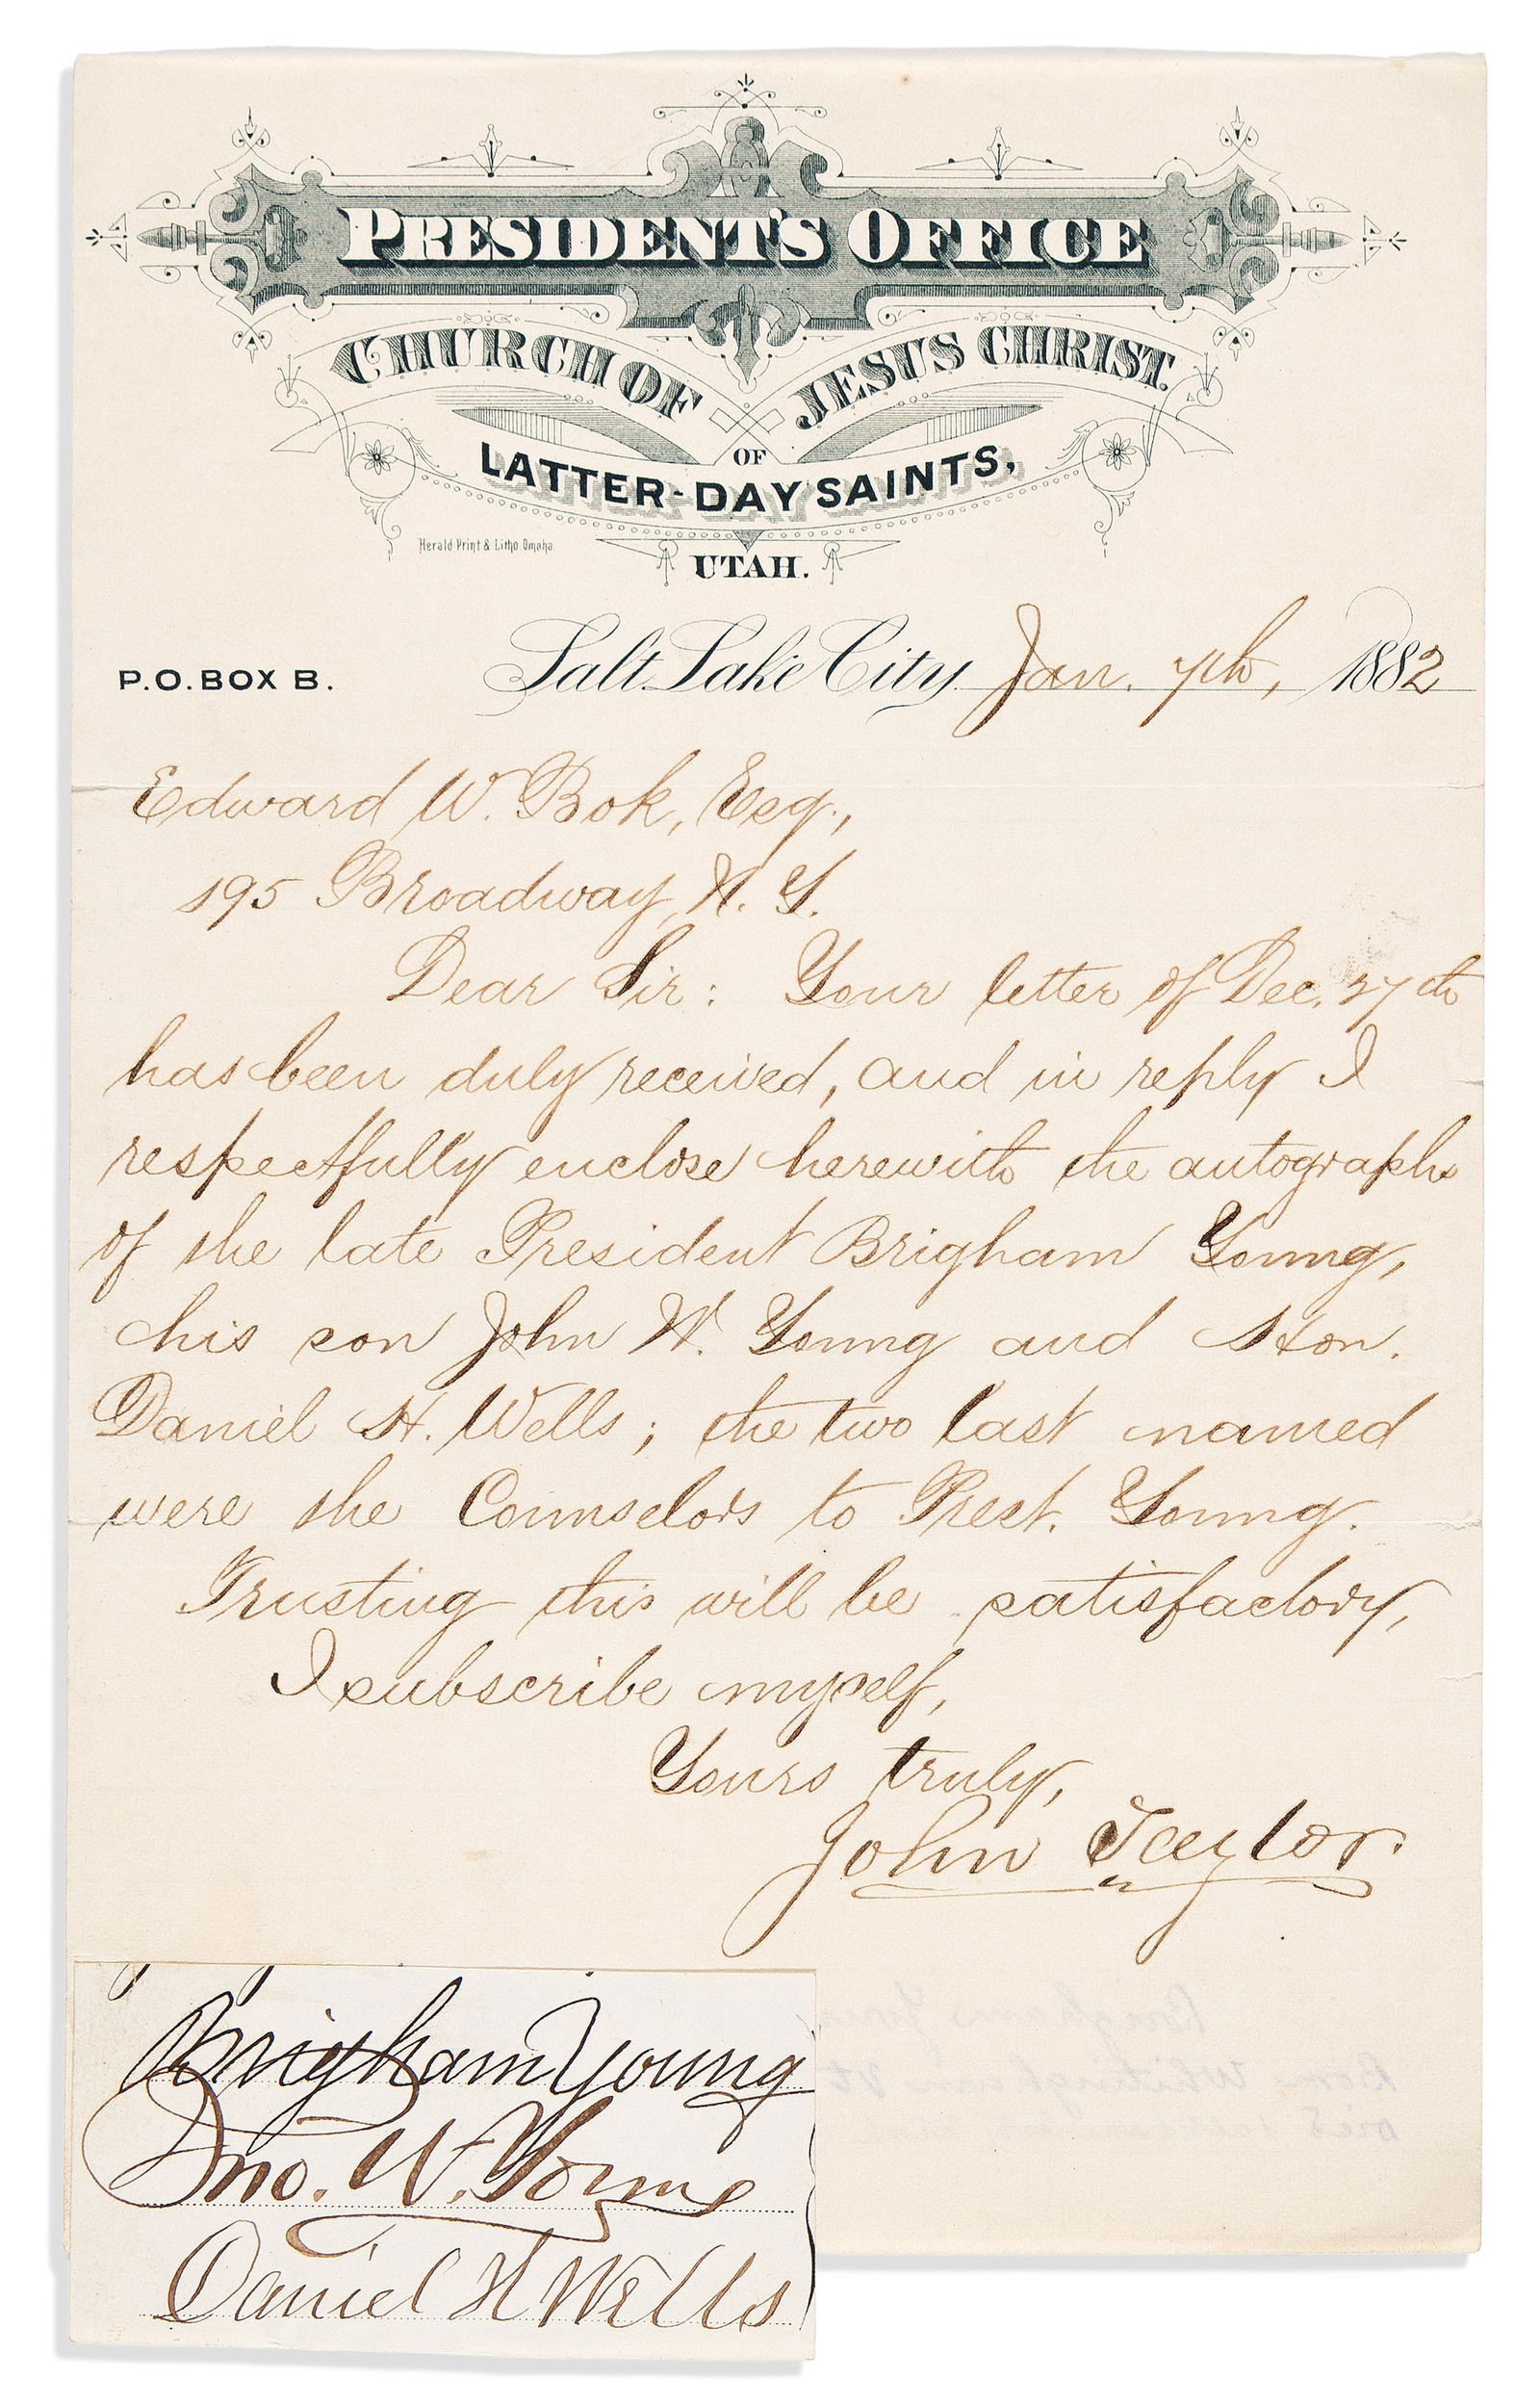 PRESIDENT'S OFFICE
CHURCH OF JESUS CHRIST.
OF
LATTER-DAY SAINTS,
Herald Print & Litho. Omaha
UTAH.
P.O. BOX B. Salt Lake City Jan. 7th, 1882
Edward W. Bok, Esq.,
195 Broadway, N. Y.
Dear Sir: Your letter of Dec. 27th
has been duly received, and in reply I
respectfully enclose herewith the autograph
of the late President Brigham Young,
his son John W. Young and Hon.
Daniel H. Wells; the two last named
were the Counselors to Prest. Young.
Trusting this will be satisfactory,
I subscribe myself,
Yours truly,
John Taylor.
Brigham Young
Jno. W. Young
Daniel H Wells